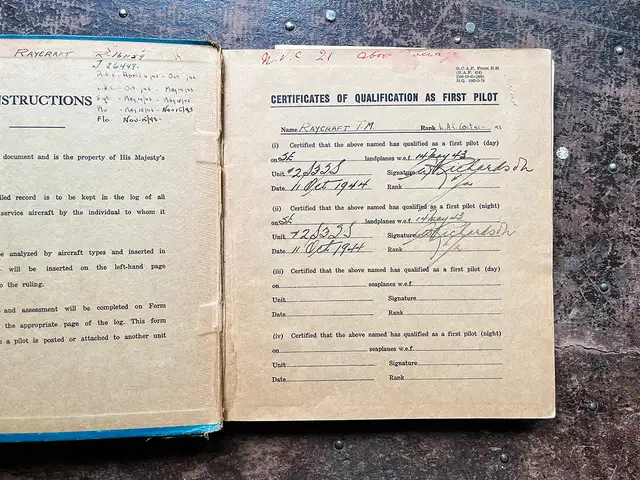 RAYCRAFT R 161159
J 26447.
A.C. April 10/42 - Oct /42
L.A.C. Oct /42 - May 14/43
Sgt - May 14/43 - May 14/43
P/O - May 14/43 - Nov. 15/43
F/O Nov. 15/43 -
NSTRUCTIONS
document and is the property of His Majesty's
iled record is to be kept in the log of all
service aircraft by the individual to whom it
be analyzed by aircraft types and inserted in
will be inserted on the left-hand page
o the ruling.
and assessment will be completed on Form
the appropriate page of the log. This form
a pilot is posted or attached to another unit
N.V.C 21 Above Average
R.C.A.F. Form R.95
H.Q. 1062-3-78
CERTIFICATES OF QUALIFICATION AS FIRST PILOT
Name RAYCRAFT T.M. Rank L.A.C.
(i) Certified that the above named has qualified as a first pilot (day)
on SE landplanes w.e.f. 14 May 43
Unit #2 SFTS Signature Richardson
Date 11 Oct 1944 Rank F/L
(ii) Certified that the above named has qualified as a first pilot (night)
on SE landplanes w.e.f. 14 May 43
Unit #2 SFTS Signature Richardson
Date 11 Oct 1944 Rank F/L
(iii) Certified that the above named has qualified as a first pilot (day)
on seaplanes w.e.f.
Unit Signature
Date Rank
(iv) Certified that the above named has qualified as a first pilot (night)
on seaplanes w.e.f.
Unit Signature
Date Rank